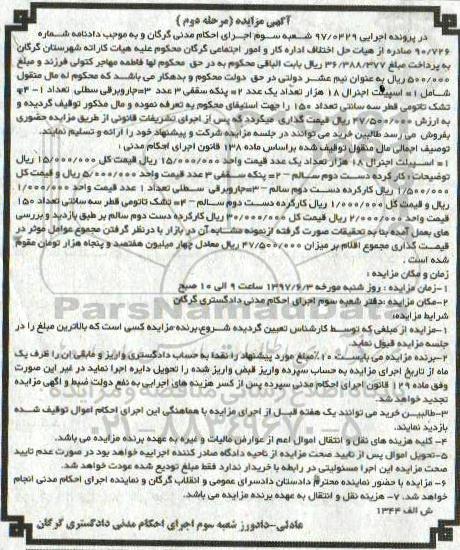 آگهی مزایده (مرحله دوم)
در پرونده اجرایی ۹۷/۰۴۲۹ شعبه سوم اجرای احکام مدنی گرگان و به موجب دادنامه شماره
۹۰/۷۲۶ صادره از هیات حل اختلاف اداره کار و امور اجتماعی گرگان محکوم علیه هیات کاراته شهرستان گرگان
به پرداخت مبلغ ۳۶/۳۸۸/۳۷۷ ریال بابت الباقی محکوم به در حق محکوم لها فاطمه مهاجر کتولی فرزند و مبلغ
۵۰۰/۰۰۰ ریال به عنوان نیم عشر دولتی در حق دولت محکوم و بدهکار می باشد که محکوم له مال منقول
شامل ۱= اسپیلت اجنرال ۱۸ هزار تعداد یک عدد ۲= پنکه سقفی ۳ عدد ۳=جاروبرقی سطلی تعداد ۱- ۴=
تشک تاتومی قطر سه سانتی تعداد ۱۵۰ را جهت استیفای محکوم به تعرفه نموده و مال مذکور توقیف گردیده و
به ارزش ۴۷/۵۰۰/۰۰۰ ریال قیمت گذاری میگردد که پس از اجرای تشریفات قانونی از طریق مزایده حضوری
بفروش می رسد طالبین خرید می توانند در جلسه مزایده شرکت و پیشنهاد خود را ارائه و تسلیم نمایند.
توصیف اجمالی مال منقول توقیف شده براساس ماده ۱۳۸ قانون اجرای احکام مدنی :
۱= اسپیلت اجنرال ۱۸ هزار تعداد یک عدد قیمت واحد ۱۵/۰۰۰/۰۰۰ ریال قیمت کل ۱۵/۰۰۰/۰۰۰ ریال
توضیحات : کار کرده دست دوم سالم – ۲= پنکه سقفی ۳ عدد قیمت واحد ۵/۰۰۰/۰۰۰ ریال و قیمت کل
۱/۵۰۰/۰۰۰ ریال کارکرده دست دوم سالم – ۳=جاروبرقی سطلی تعداد ۱ عدد قیمت واحد ۱/۰۰۰/۰۰۰
ریال و قیمت کل ۱/۰۰۰/۰۰۰ ریال کارکرده دست دوم سالم – ۴= تشک تاتومی قطر سه سانتی تعداد ۱۵۰
قیمت واحد ۲/۰۰۰/۰۰۰ ریال قیمت کل ۳۰/۰۰۰/۰۰۰ ریال کارکرده دست دوم سالم بر طبق بازدید و بررسی
های بعمل آمده بنا به تحقیقات صورت گرفته ازنمونه مشابه آن در بازار با درنظر گرفتن مجموع عوامل موثر در
قیمت گذاری مجموع اقلام بر میزان ۴۷/۵۰۰/۰۰۰ ریال معادل چهار میلیون هفتصد و پنجاه هزار تومان مقوم
شده است .
زمان و مکان مزایده :
۱–زمان مزایده : روز شنبه مورخه ۱۳۹۷/۶/۳ ساعت ۹ الی ۱۰ صبح
۲–مکان مزایده :دفتر شعبه سوم اجرای احکام مدنی دادگستری گرگان
شرایط مزایده:
۱–مزایده از مبلغی که توسط کارشناس تعیین گردیده شروع،برنده مزایده کسی است که بالاترین مبلغ را در
جلسه مزایده قبول نماید.
۲–برنده مزایده می بایست ۱۰٪مبلغ مورد پیشنهاد را نقدا به حساب دادگستری واریز و مابقی ان را ظرف یک
ماه از تاریخ اجرای مزایده به حساب سپرده واریز قبض واریز شده را تحویل دایره اجرا نماید در غیر این صورت
وفق ماده ۱۲۹ قانون اجرای احکام مدنی سپرده پس از کسر هزینه های اجرایی به نفع دولت ضبط و اگهی مزایده
تجدید خواهد شد.
۳–طالبین خرید می توانند یک هفته قبل از اجرای مزایده با هماهنگی این اجرای احکام اموال توقیف شده
بازدید نمایند.
۴– کلیه هزینه های نقل و انتقال اموال اعم از عوارض مالیات و غیره به عهده برنده مزایده می باشد.
۵–تحویل اموال پس از تایید صحت مزایده از ناحیه دادگاه صادر کننده اجراییه خواهد بود در صورت عدم تایید
صحت مزایده این اجرا مسئولیتی در رابطه با خریدار ندارد فقط مبلغ تودیع شده عودت خواهد شد.
۶– مزایده با حضور نماینده محترم دادستان دادسرای عمومی و انقلاب گرگان و نماینده اجرای احکام مدنی انجام
خواهد شد. ۷– هزینه نقل و انتقال به عهده برنده مزایده می باشد.
ش الف ۱۳۴۴
عادلی–دادورز شعبه سوم اجرای احکام مدنی دادگستری گرگان
ParsNamadData
۰۲۱-۸۸۳۴۹۶۷۰-۵